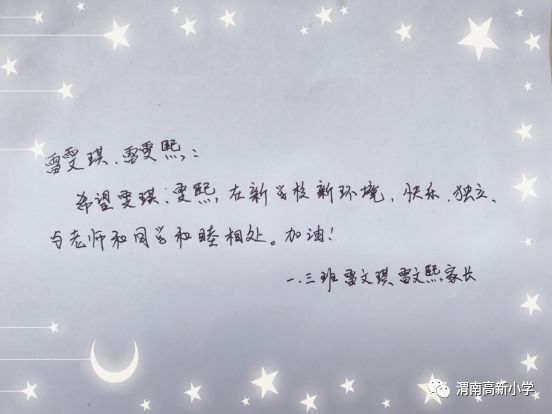 雷雯琪、雷雯熙：
希望雯琪、雯熙，在新学校新环境，快乐、独立、
与老师和同学和睦相处。加油！
一.三班雷文琪雷文熙家长
渭南高新小学